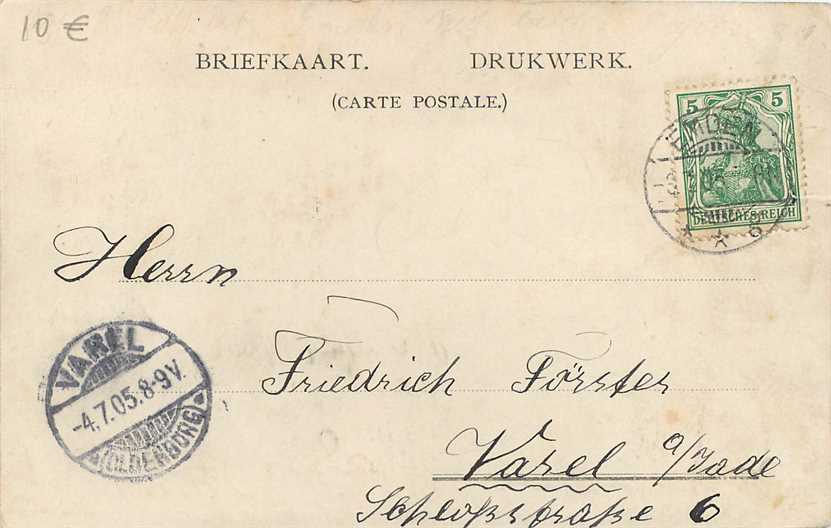 10 €
BRIEFKAART. DRUKWERK.
(CARTE POSTALE.)
5 5
DEUTSCHES REICH
EMDEN
Herrn
Friedrich Förster
Varel a/Jade
Schloßstraße 6
VAREL
-4.7.05.8-9V.
(OLDENBURG)